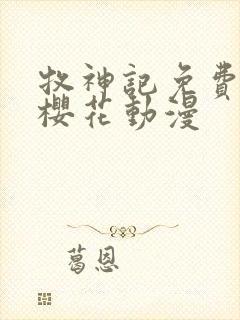 牧神記免費
櫻花動漫
葛恩